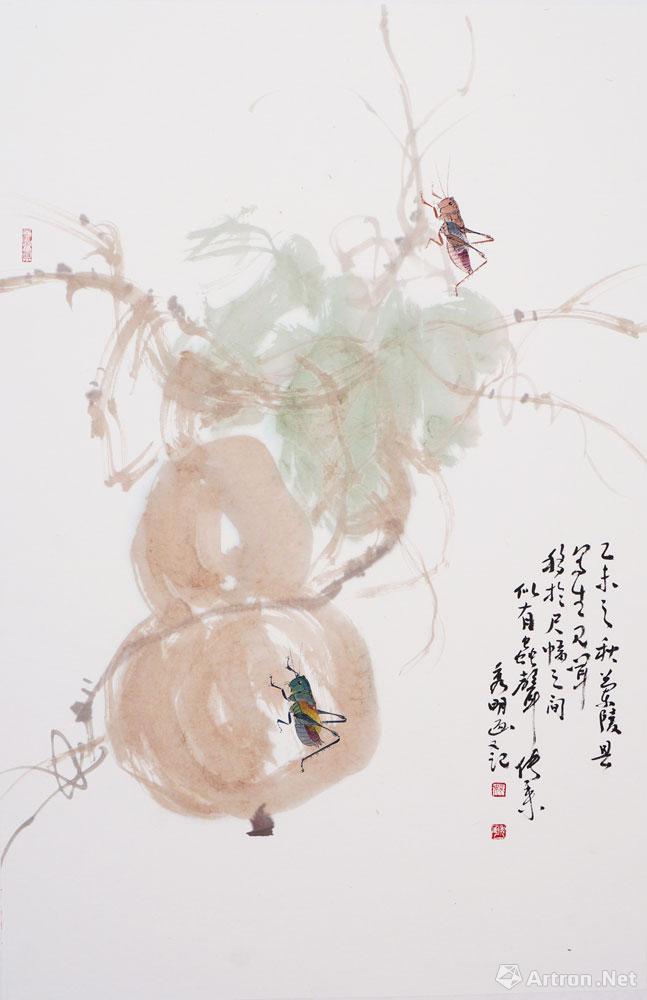 乙未之秋兰陵县
写生见闻
移於尺幅之间
似有虫声传来
秀明画又记
Artron.Net